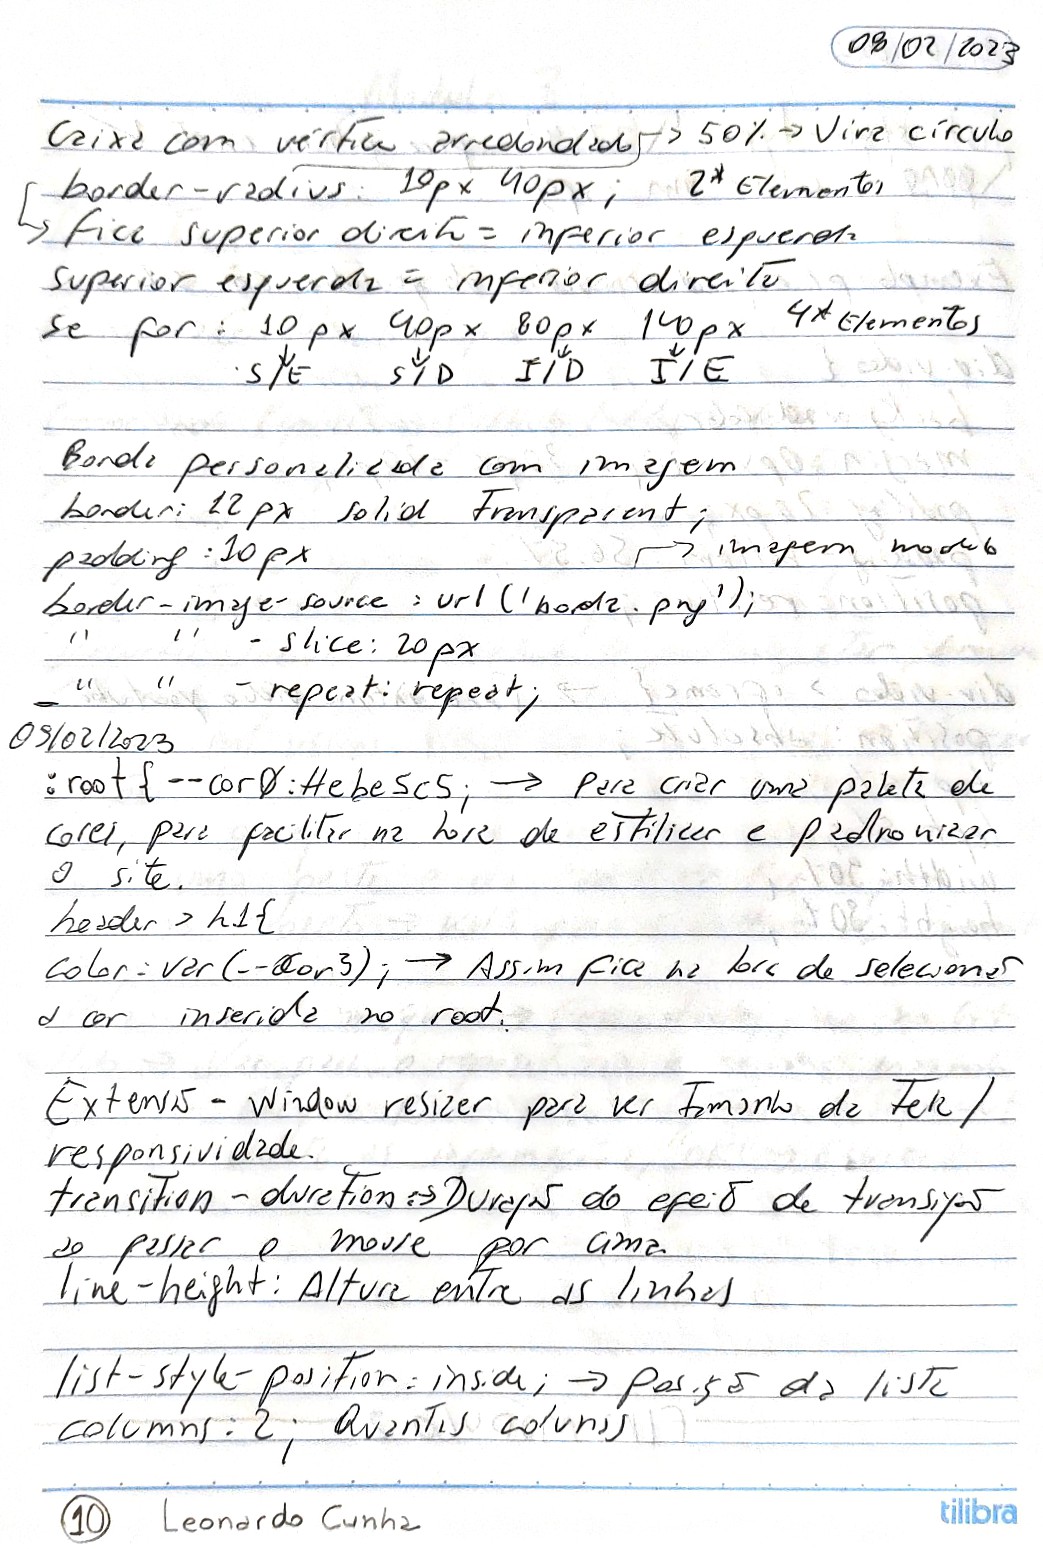 08/02/2023
Caixa com vértice arredondado → 50% → Vira círculo
border-radius: 10px 40px; 2* Elementos
↳ fica superior direita = inferior esquerda
superior esquerda = inferior direita
se for: 10px 40px 80px 140px 4* Elementos
S/E S/D I/D I/E
Borda personalizada com imagem
border: 12px solid transparent;
padding: 10px → imagem modelo
border-image-source: url('borda.png');
" " - slice: 20px
" " - repeat: repeat;
09/02/2023
:root{ --cor0:#ebe5c5; → Para criar uma paleta de
cores, para facilitar na hora de estilizar e padronizar
o site.
header > h1{
color: var(--cor3); → Assim fica na hora de selecionar
a cor inserida no root.
Extensão - Window resizer para ver tamanho da tela/
responsividade.
transition-duration: ⇒ Duração do efeito de transição
ao passar o mouse por cima
line-height: Altura entre as linhas
list-style-position: inside; → Posição da lista
columns: 2; Quantas colunas
10 Leonardo Cunha
tilibra